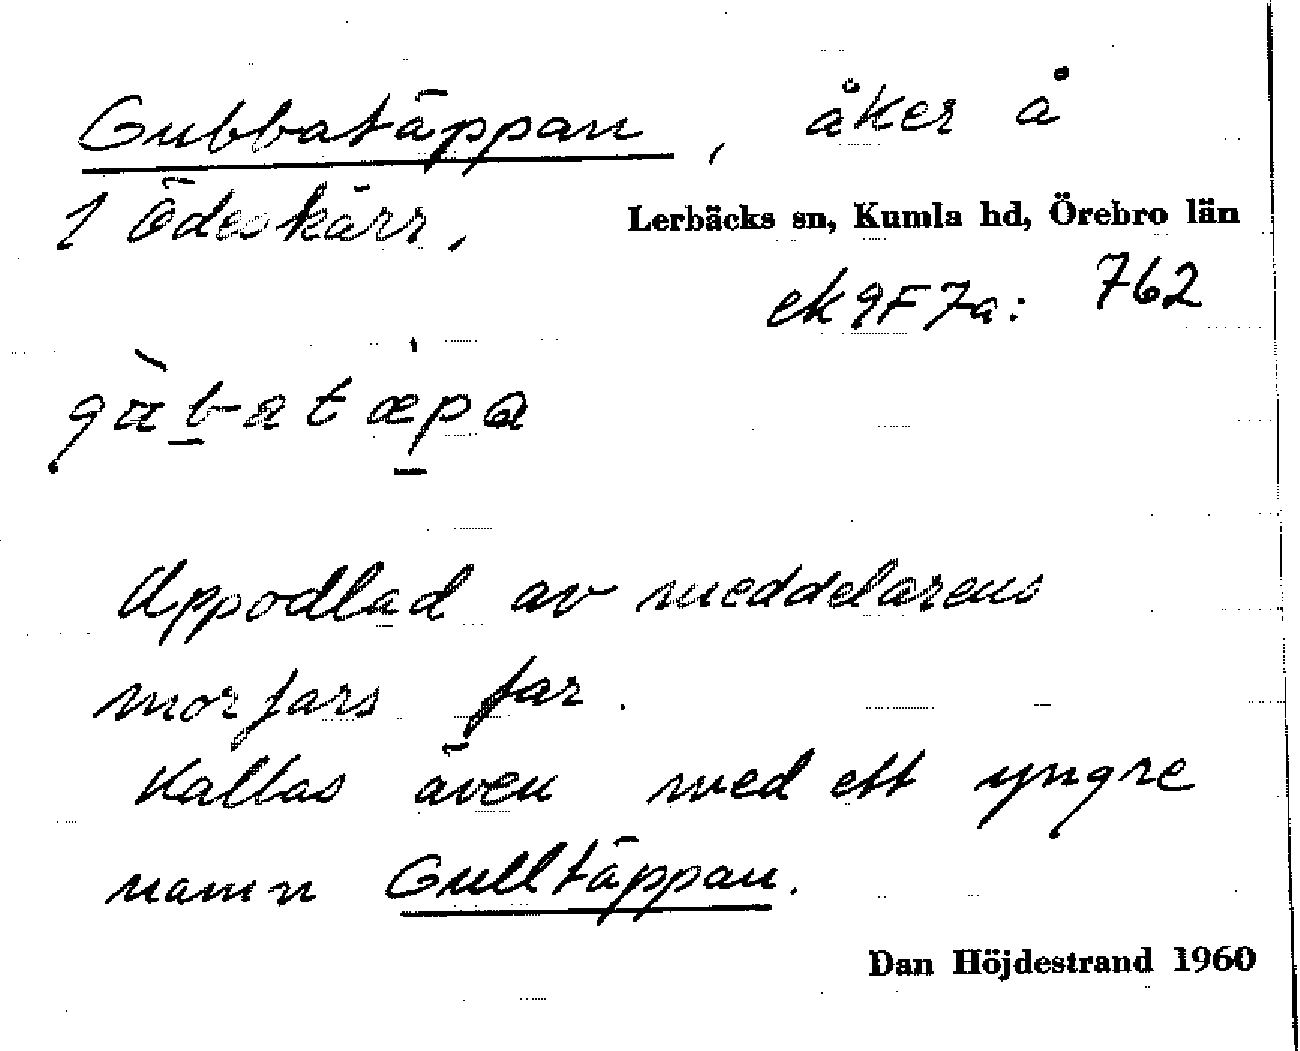 Gubbatäppan, åker å
1 Ödeskärr.
Lerbäcks sn, Kumla hd, Örebro län
ek 9F7a: 762
gùbatæpa
Uppodlad av meddelarens
morfars far.
Kallas även med ett yngre
namn Gulltäppan.
Dan Höjdestrand 1960